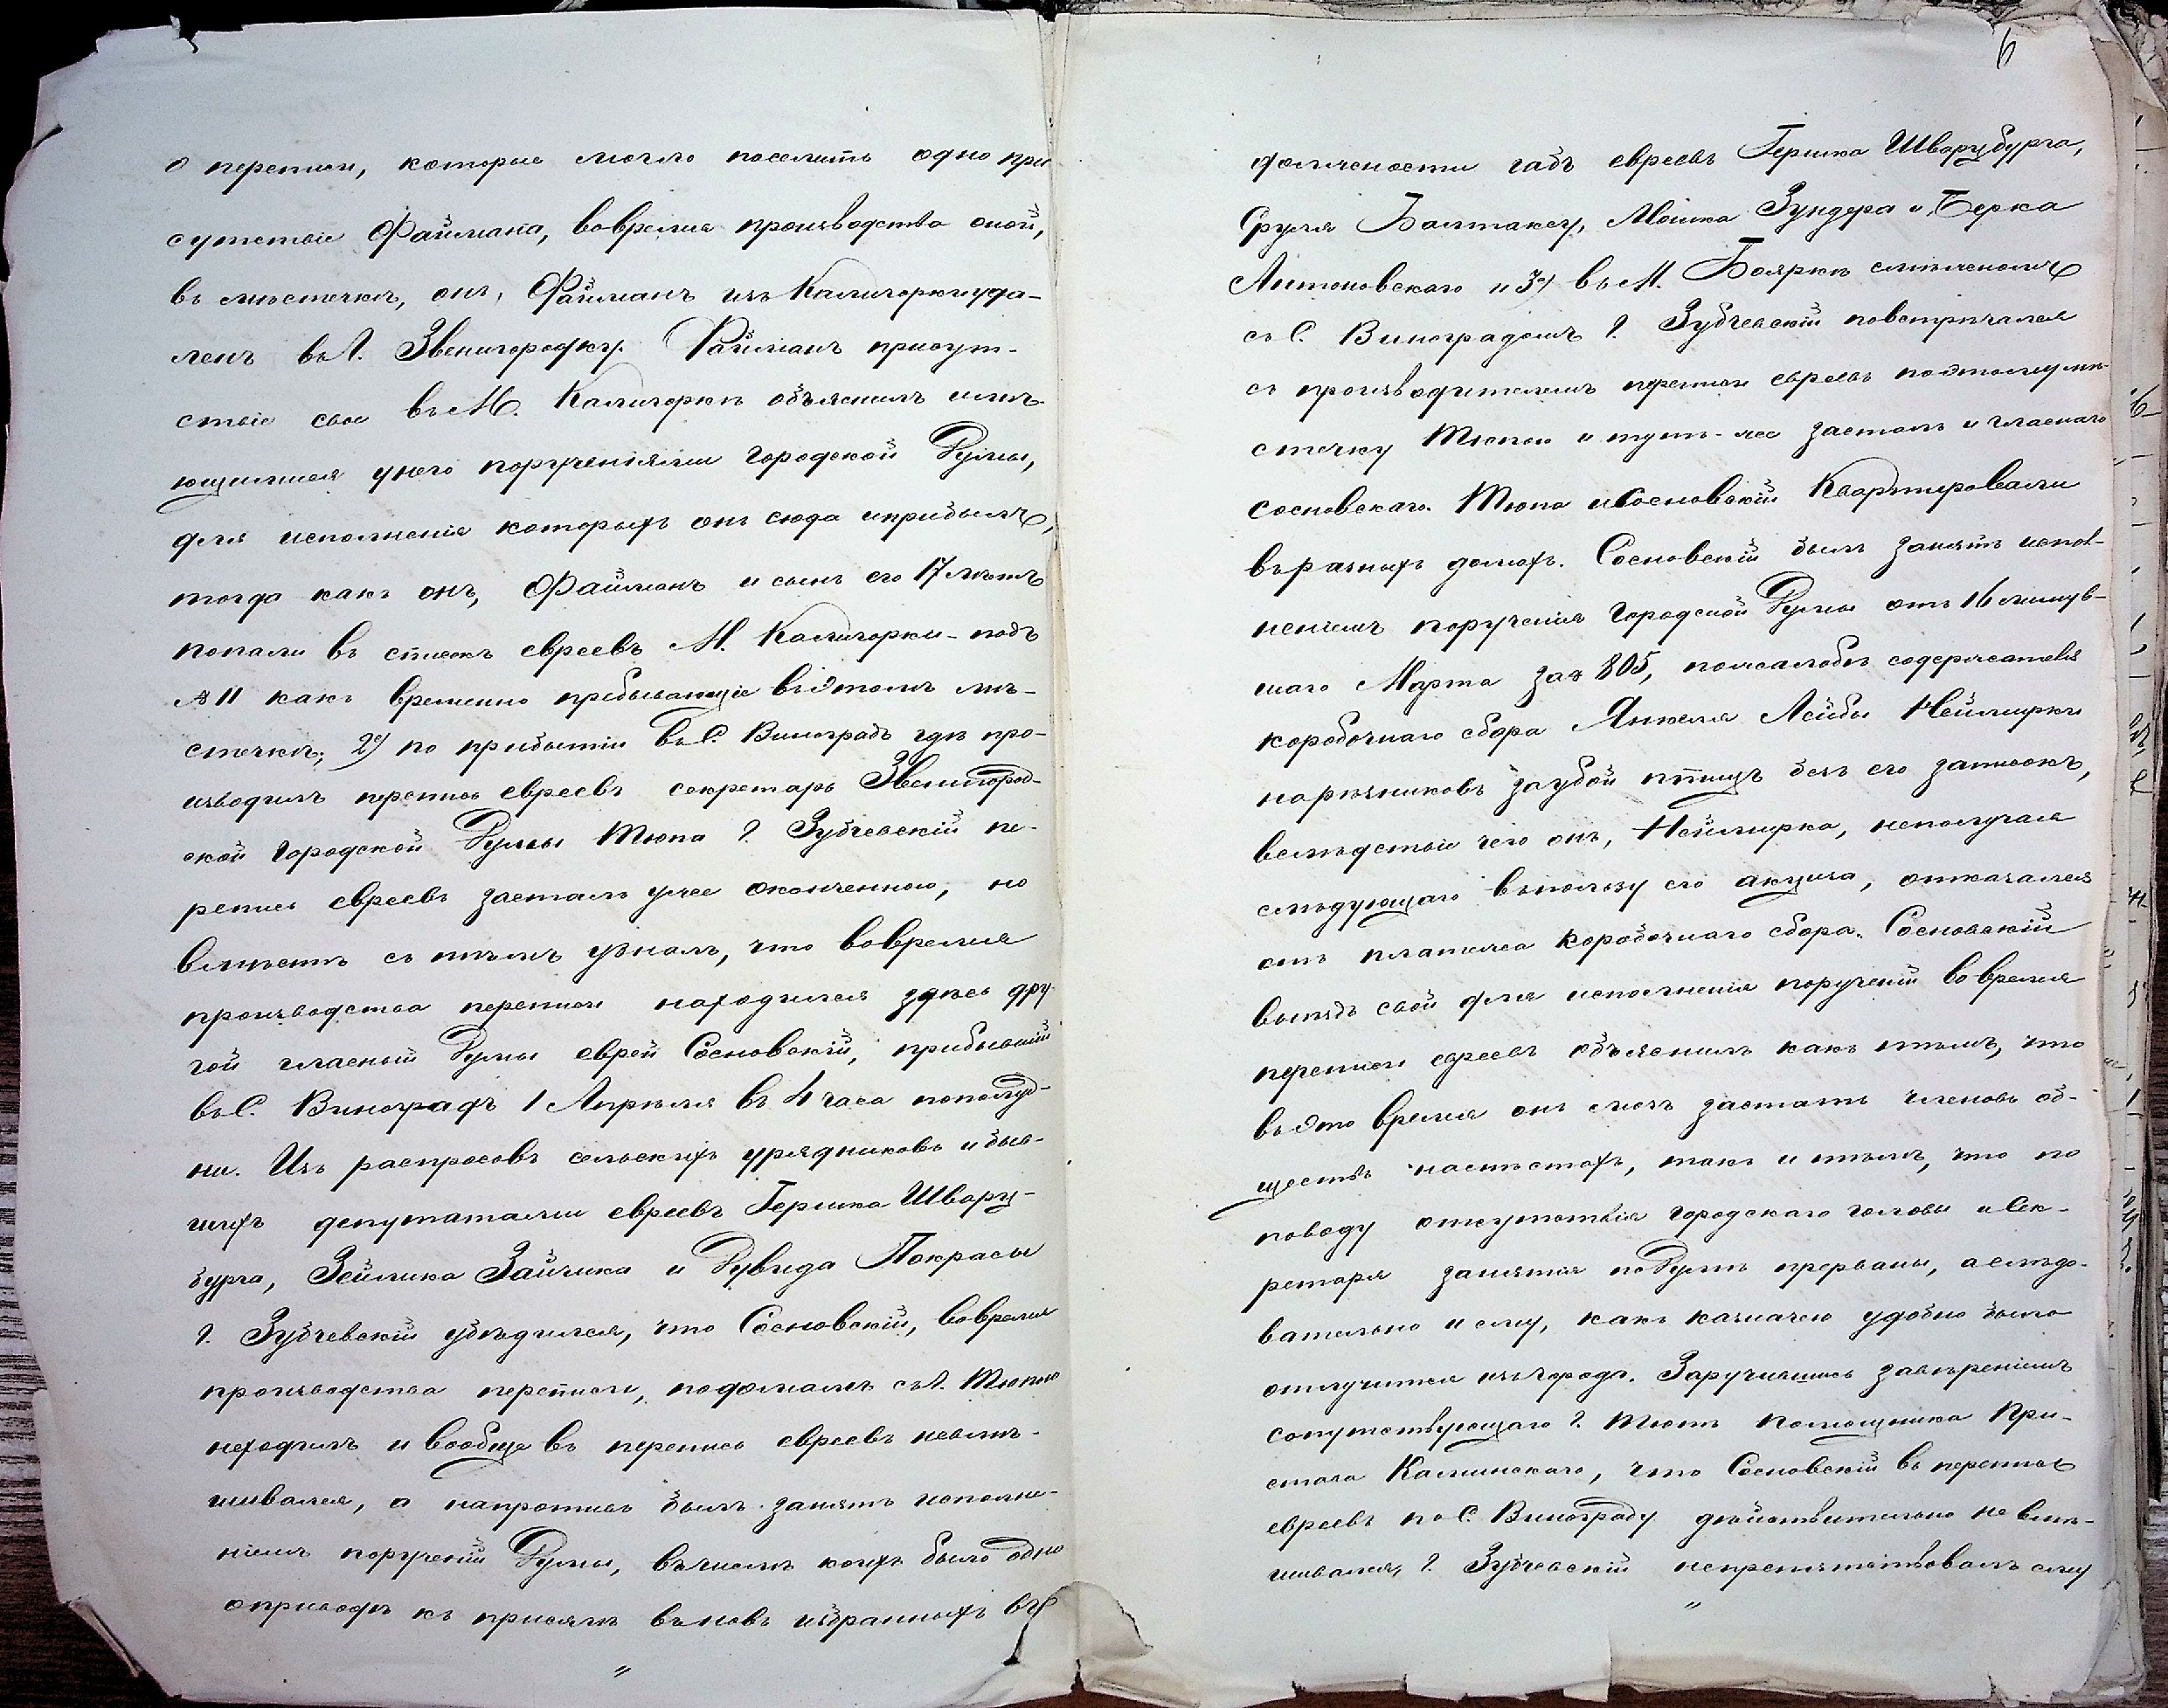 о переписи, которые могло поселить одно при
сутствіе Файмана, вовремя производства оной,
въ мѣстечкѣ, онъ, Файманъ изъ Калигорки уда-
ленъ въ г. Звенигородку. Файманъ присут-
ствіе свое въ М. Калигоркѣ объяснилъ имѣ-
ющимися у него порученіями Городской Думы,
для исполненія которыхъ онъ сюда и прибылъ,
тогда какъ онъ, Файманъ и сынъ его 17 лѣтъ
попали въ списокъ евреевъ М. Калигорки подъ
№ 11 какъ временно пребывающіе въ этомъ мѣ-
стечкѣ; 2) по прибытіи въ С. Виноградъ гдѣ про-
изводилъ перепись евреевъ секретарь Звенигород-
ской Городской Думы Тюпа г. Зубчевскій пе-
репись евреевъ засталъ уже оконченною, но
вмѣстѣ съ тѣмъ узналъ, что вовремя
производства переписи находился здѣсь дру-
гой гласный Думы еврей Сосновскій, прибывшій
въ С. Виноградъ 1 Апрѣля въ 4 часа пополуд-
ни. Изъ распросовъ сельскихъ урядниковъ и быв-
шихъ депутатами евреевъ Гершка Шварц-
бурга, Зейлика Зайчика и Дувида Покрасы
г. Зубчевскій убѣдился, что Сосновскій, вовремя
производства переписи, по домамъ съ г. Тюпою
неходилъ и вообще въ перепись евреевъ невмѣ-
шивался, а напротивъ былъ занятъ исполне-
ніемъ порученій Думы, въ числѣ коихъ было одно
о приводѣ къ присягѣ вновь избранныхъ въ
6
должности габъ евреевъ Гершка Шварцбурга,
Сруля Балтаксу, Мошка Зундера и Берка
Литоновскаго и 3) въ М. Бояркѣ смѣжномъ
съ С. Виноградомъ г. Зубчевскій повстрѣчался
съ производителемъ переписи евреевъ по этому мѣ-
стечку Тюпою и тутъ-же засталъ и гласнаго
Сосновскаго. Тюпа и Сосновскій квартировали
въ разныхъ домахъ. Сосновскій былъ занятъ испол-
неніемъ порученія Городской Думы отъ 16 минув-
шаго Марта за № 805, по жалобѣ содержателя
коробочнаго сбора Янкеля Лейбы Неймирки
на рѣзниковъ за убой птицъ безъ его записокъ,
вслѣдствіе чего онъ, Неймирка, неполучая
слѣдующаго въ пользу его акциза, отказался
отъ платежа коробочнаго сбора. Сосновскій
выѣздъ свой для исполненія порученій во время
переписи евреевъ объяснилъ какъ тѣмъ, что
въ это время онъ могъ застать членовъ об-
ществъ на мѣстахъ, такъ и тѣмъ, что по
поводу отсутствія городскаго головы и Сек-
ретаря занятія по Думѣ прерваны, а слѣдо-
вательно и ему, какъ казначею удобно было
отлучиться изъ города. Заручившись завѣреніемъ
сопутствующаго г. Тюпѣ Помощника При-
става Калинскаго, что Сосновскій въ перепись
евреевъ по С. Винограду дѣйствительно не вмѣ-
шивался, г. Зубчевскій непрепятствовалъ ему